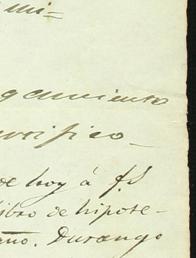 mi-
gamiento
rorifico.
de hoy á fs
libro de hipote-
ano. Durango